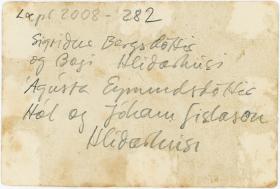 Lzpt 2008-282
Sigridur Bergsdóttir
og Bogi Hlidarhúsi
Ágústa Eymundsdóttir
Hól og Jóhann Gíslason
Hlidarhúsi